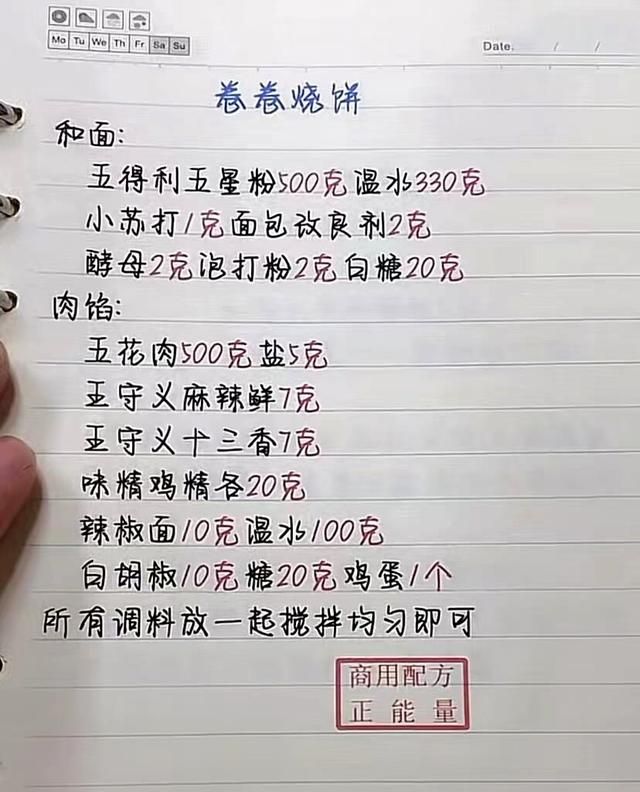 Mo Tu We Th Fr Sa Su
Date. / /
卷卷烧饼
和面:
五得利五星粉500克温水330克
小苏打1克面包改良剂2克
酵母2克泡打粉2克白糖20克
肉馅:
五花肉500克盐5克
王守义麻辣鲜7克
王守义十三香7克
味精鸡精各20克
辣椒面10克温水100克
白胡椒10克糖20克鸡蛋1个
所有调料放一起搅拌均匀即可
商用配方
正能量